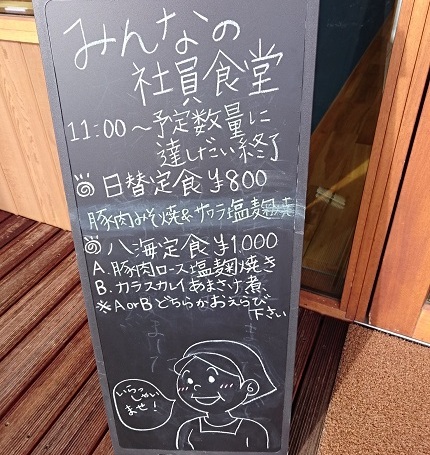 みんなの
社員食堂
11:00～予定数量に
達しだい終了
日替定食¥800
豚肉みそ焼&サワラ塩麹焼
八海定食¥1,000
A.豚肉ロース塩麹焼き
B.カラスカレイあまさけ煮
※AorBどちらかおえらび
下さい
いらっ
しゃい
ませ!